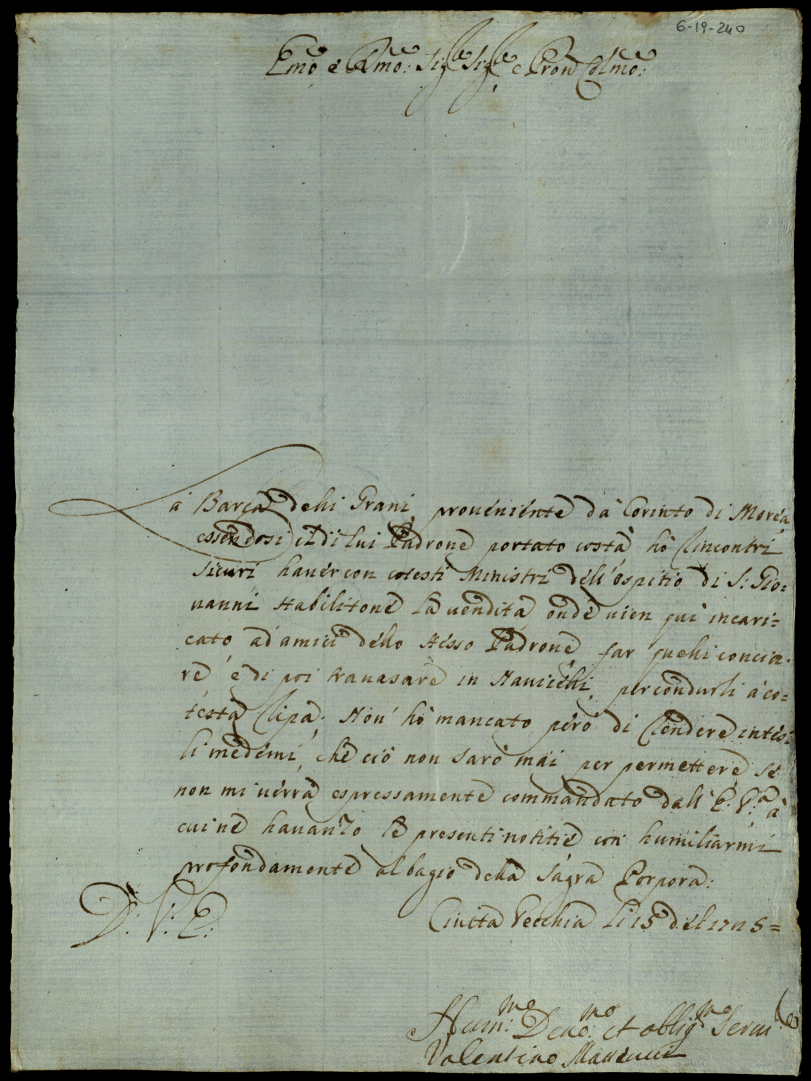 6-19-240
Emo: e Rmo: Sigre Sigre e Pron Colmo:
La Barca delli Grani proveniente da Corinto di Morea
essendosi il di lui Padrone portato costà hò rincontri
sicuri haver con cotesti Ministri dell'Ospitio di S: Gio-
vanni stabilitone la vendita onde vien quì incari-
cato ad amici dello stesso Padrone far quelli concia-
re e di poi travasare in Navicelli, per condurli à co-
testa Ripa. Non hò mancato però di rendere intesi
li medemi, che ciò non sarò mai per permettere se
non mi verrà espressamente commandato dall'E: V:ra à
cui ne havanzo le presenti notitie con humiliarmi
profondamente al bagio della Sagra Porpora:
D: V: E: Civitta Vecchia li 15
Hum:mo Devo:mo et obblig:mo Serv
Valentino